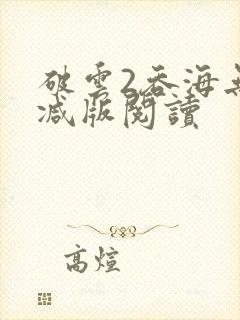 破雲2吞海無
減版閱讀
高煊